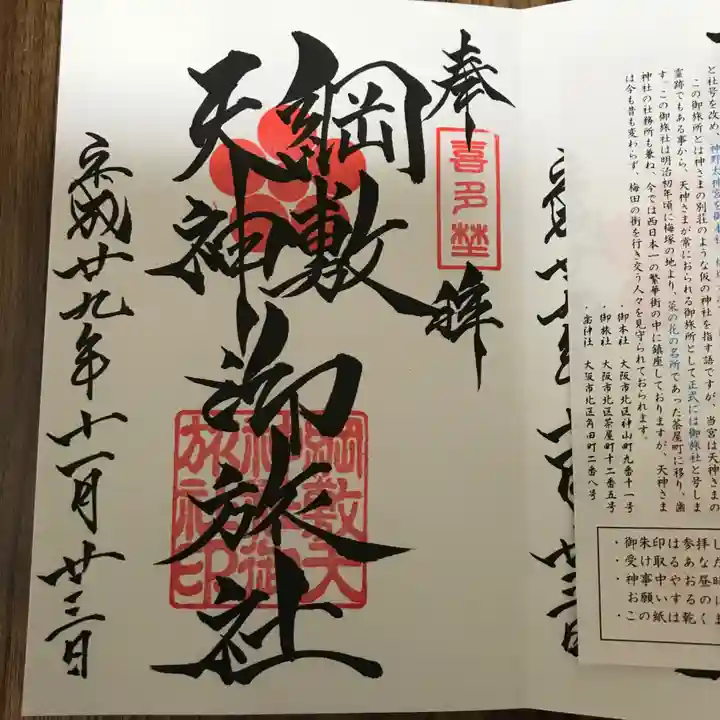 奉拝
喜多埜
綱敷
天神
御旅社
綱敷天
神社御
旅社印
平成廿九年十一月廿三日
と社号を改め、
この御旅所とは神さまの別荘のような仮の神社を指す語ですが、当宮は天神さまの
霊跡でもある事から、天神さまが常におられる御旅所として正式には御旅社と号しま
す。この御旅社は明治初年頃に梅塚の地より、菜の花の名所であった茶屋町に移り、歯
神社の社務所も兼ね、今では西日本一の繁華街の中に鎮座しておりますが、天神さま
は今も昔も変わらず、梅田の街を行き交う人々を見守られておられます。
・御本社 大阪市北区神山町九番十一号
・御旅社 大阪市北区茶屋町十二番五号
・歯神社 大阪市北区角田町二番八号
・御朱印は参拝し
受け取るあな た
・神事中やお昼の時
お願いする に
・この紙は乾くま